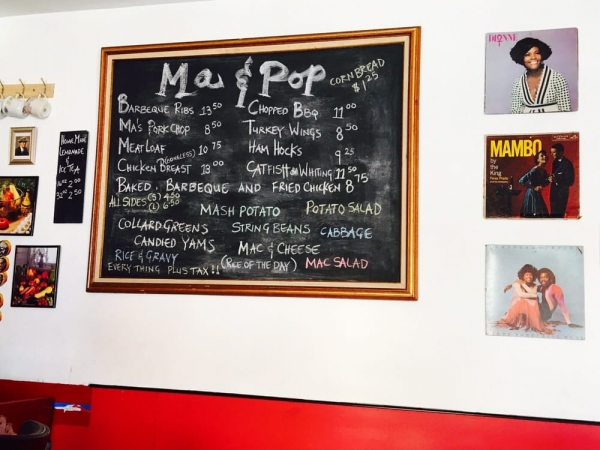 Ma & Pop
CORNBREAD
$1.25
BARBEQUE RIBS 13.50
MA'S PORK CHOP 8.50
MEAT LOAF 10.75
CHICKEN BREAST (BONELESS) 13.00
CHOPPED BBQ 11.00
TURKEY WINGS 8.50
HAM HOCKS 9.25
CATFISH OR WHITING 11.50
BAKED, BARBEQUE AND FRIED CHICKEN 8.75
ALL SIDES (S) 4.50
(L) 6.50
MASH POTATO POTATO SALAD
COLLARD GREENS STRING BEANS CABBAGE
CANDIED YAMS MAC & CHEESE
RICE & GRAVY (RICE OF THE DAY) MAC SALAD
EVERY THING PLUS TAX!!
HOME MADE
LEMONADE
&
ICE TEA
16oz 2.00
32 2.50
DIONNE
MAMBO
by
the
King